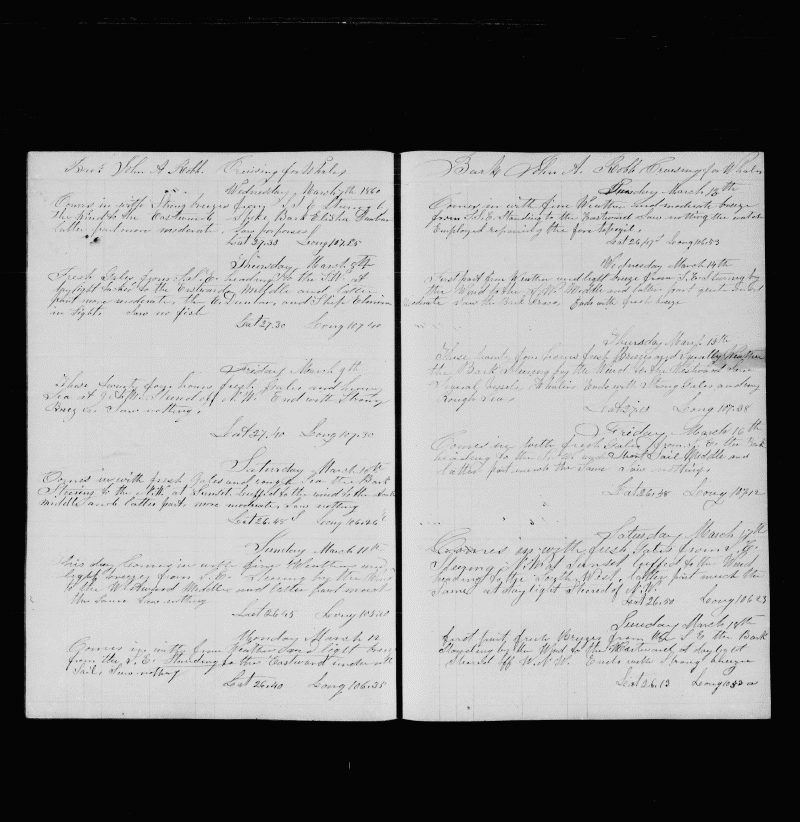 Bark John A. Robb. Cruising for Whales
Wednesday March 7th 1860
Comes in with Strong breezes from S.E. Steering by
the Wind to the Eastward Spoke Bark Elisha Dunbar
latter part more moderate. Saw porpoises
Lat 27.33 Long 107.25
Thursday March 8th
Fresh Gales from S.E. heading to the S.W. at
daylight tacked to the Eastward Middle and latter
part more moderate, the E. Dunbar, and Ship
in Sight. Saw no fish
Lat 27.30 Long 107.40
Friday March 9th
These twenty four hours fresh Gales and heavy
Sea at Steered off N.W. End with Strong
Saw nothing.
Lat 27.40 Long 107.30
Saturday March 10th
Comes in with fresh Gales and rough Sea the Bark
Steering to the N.W. at Sunset luffed to the wind to the
middle and latter part more moderate, Saw nothing
Lat 26.48 Long 106.26
Sunday March 11th
This day Comes in with fine Weather and
light breezes from S.E. Steering by the Wind
to the W. Middle and latter part much
the Same Saw nothing
Lat 26.45 Long
Monday March 12
Comes in with fine weather and light breeze
from the S.E. Standing to the Eastward under all
Sail, Saw nothing
Lat 26.40 Long 106.35
Bark John A. Robb Cruising for Whales
Tuesday March 13th
Comes in with fine Weather and moderate breeze
from S.S.E. Standing to the Eastward Saw nothing the watch
Employed repairing the fore topsail.
Lat 26.47 Long 106.53
Wednesday March 14th
First part fine Weather and light breeze from S. East steering by
the Wind to the S.W. Middle and latter part
Saw the Bark Ends with fresh breeze
Thursday March 15th
These twenty four hours fresh Breezes and Squally Weather
the Bark Steering by the Wind to the Westward Saw
Several vessels Whalers Ends with Strong Gales and very
Rough Sea.
Lat 27.00 Long 107.38
Friday March 16th
Comes in with fresh Gales from S.E. the Bark
heading to the S.W. under Short Sail Middle and
latter part much the Same Saw nothing.
Lat 26.58 Long 107.12
Saturday March 17th
Comes in with fresh Gales from S.E.
Steering N.W. at Sunset luffed to the Wind
heading to the South West. latter part much the
Same at day light Steered N.W.
Lat 26.50 Long 106.23
Sunday March 18th
first part fresh Breezes from the S E the Bark
Standing by the Wind to the Eastward, at day light
Steered off W.N.W. Ends with Strong breeze
Lat 26.13 Long